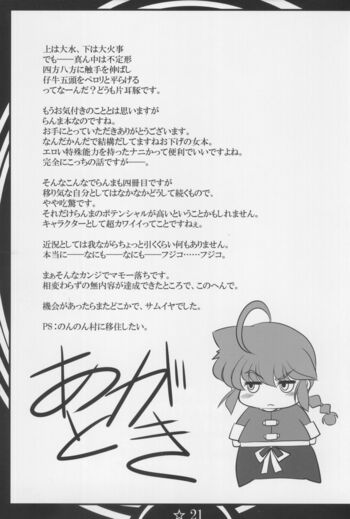 上は大水、下は大火事
でも――真ん中は不定形
四方八方に触手を伸ばし
仔牛五頭をペロリと平らげる
ってなーんだ？どうも片耳豚です。
もうお気付きのことと思いますが
らんま本なのですね。
お手にとっていただきありがとうございます。
なんだかんだで結構だしてますねお下げの女本。
エロい特殊能力を持ったナニかって便利でいいですよね。
完全にこっちの話ですが――。
そんなこんなでらんまも四冊目ですが
移り気な自分としてはなかなかどうして続くもので、
やや吃驚です。
それだけらんまのポテンシャルが高いということかもしれません。
キャラクターとして超カワイイってことですよね。
近況としては我ながらちょっと引くくらい何もありません。
本当に――なにも――なにも――フジコ……フジコ。
まぁそんなカンジでマモー落ちです。
相変わらずの無内容が達成できたところで、このへんで。
機会があったらまたどこかで、サムイヤでした。
PS：のんのん村に移住したい。
あとがき
☆ 21